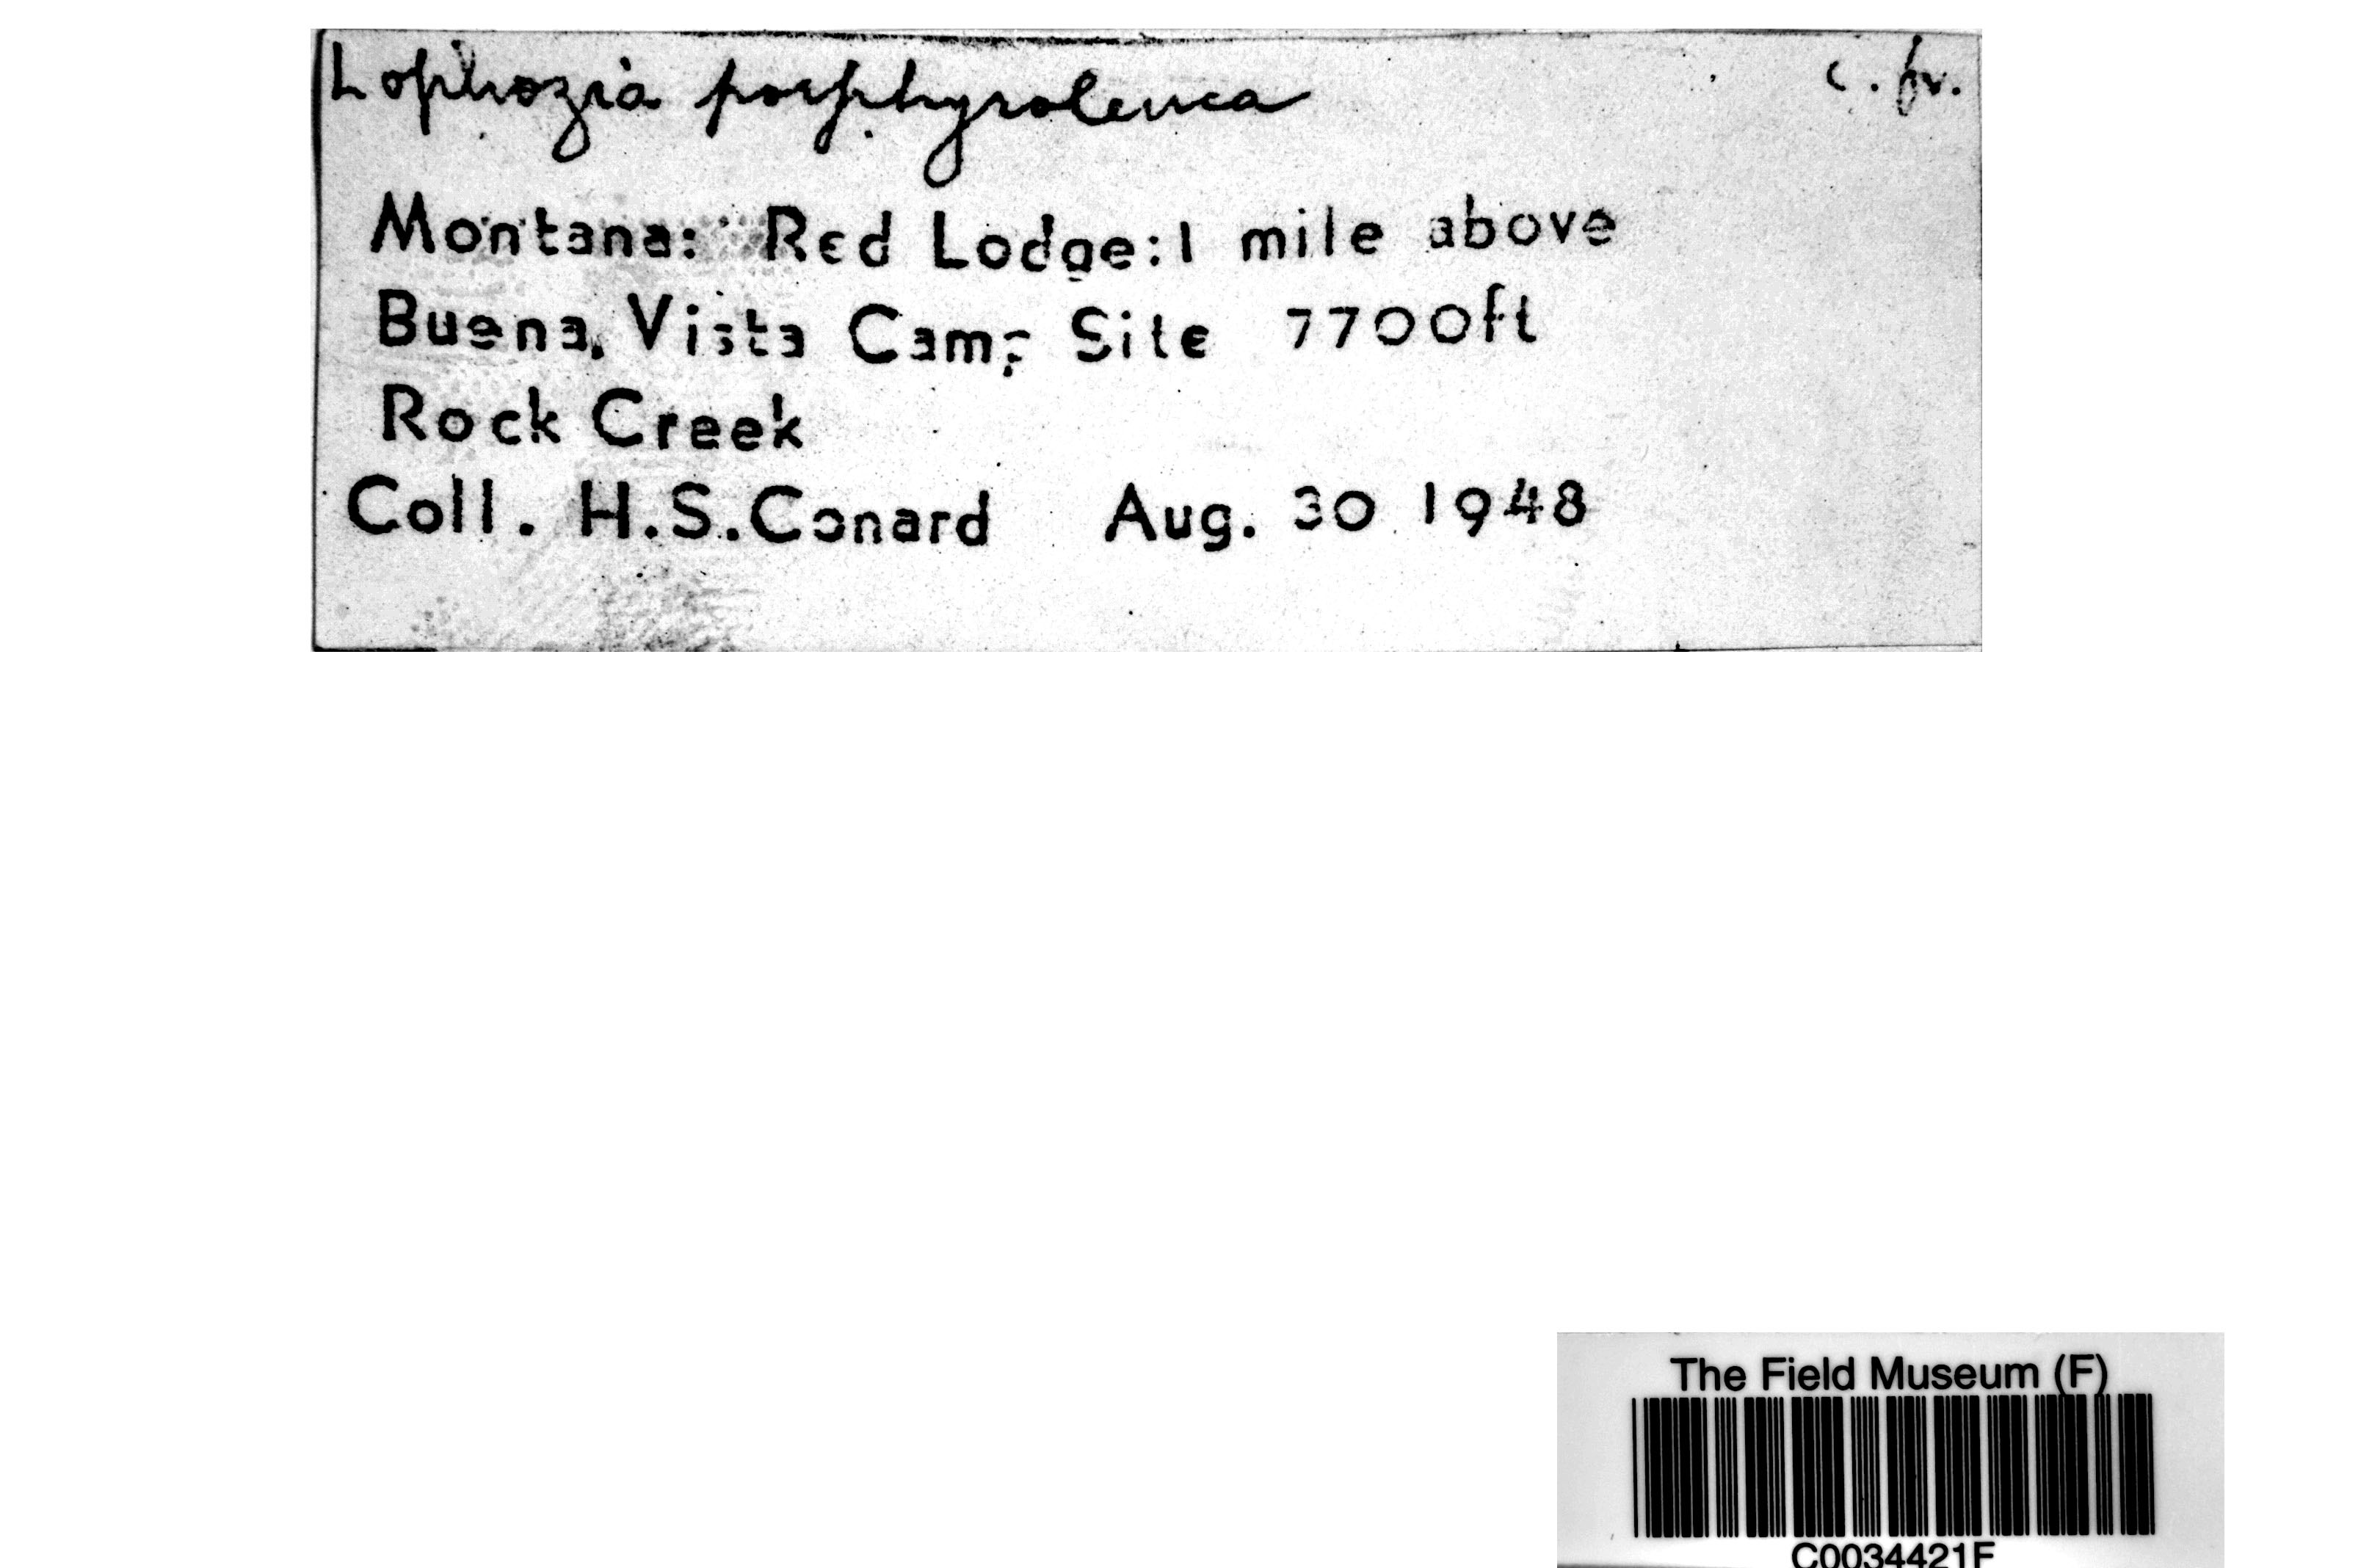 Lophozia porphyroleuca c. fr.
Montana: Red Lodge: 1 mile above
Buena Vista Camp Site 7700ft
Rock Creek
Coll. H.S. Conard Aug. 30 1948
The Field Museum (F)
C0034421F